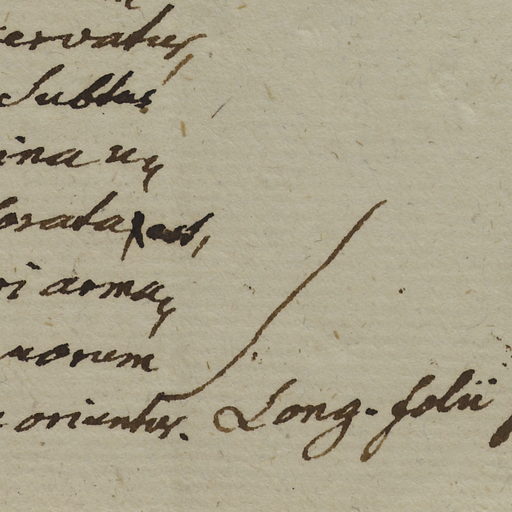 ervatus,
Subtus
ina u
orata est,
ri arma
uorum
oriuntur. Long. folii